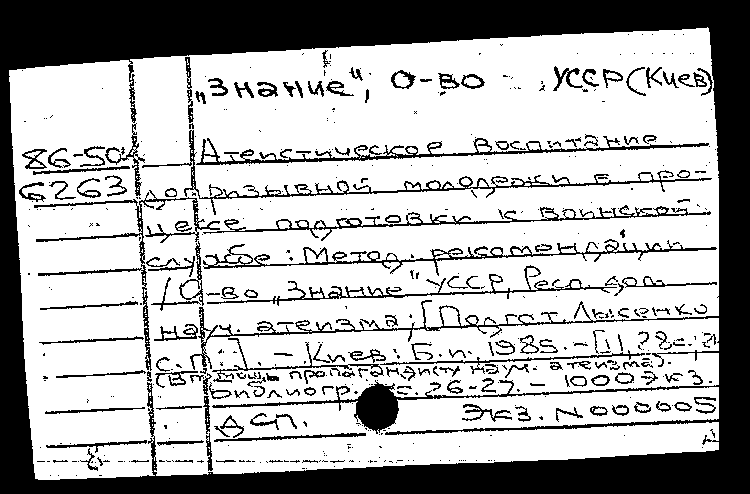 „Знание", О-во УССР (Киев)
86-504 Атеистическое воспитание
6263 допризывной молодежи в про-
цессе подготовки к воинской
службе: Метод. рекомендации
/О-во „Знание" УССР, Респ. дом
науч. атеизма; [Подгот. Лысенко
С.П.]. – Киев: Б.и., 1985. – [1], 28 с.;
(В помощь пропагандисту науч. атеизма).
Библиогр.: с. 26-27. – 100 экз.
ДСП. Экз. N 000005
8